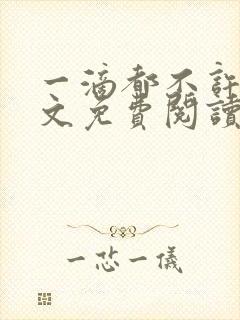 一滴都不許
文免費閱讀
一恐一儀